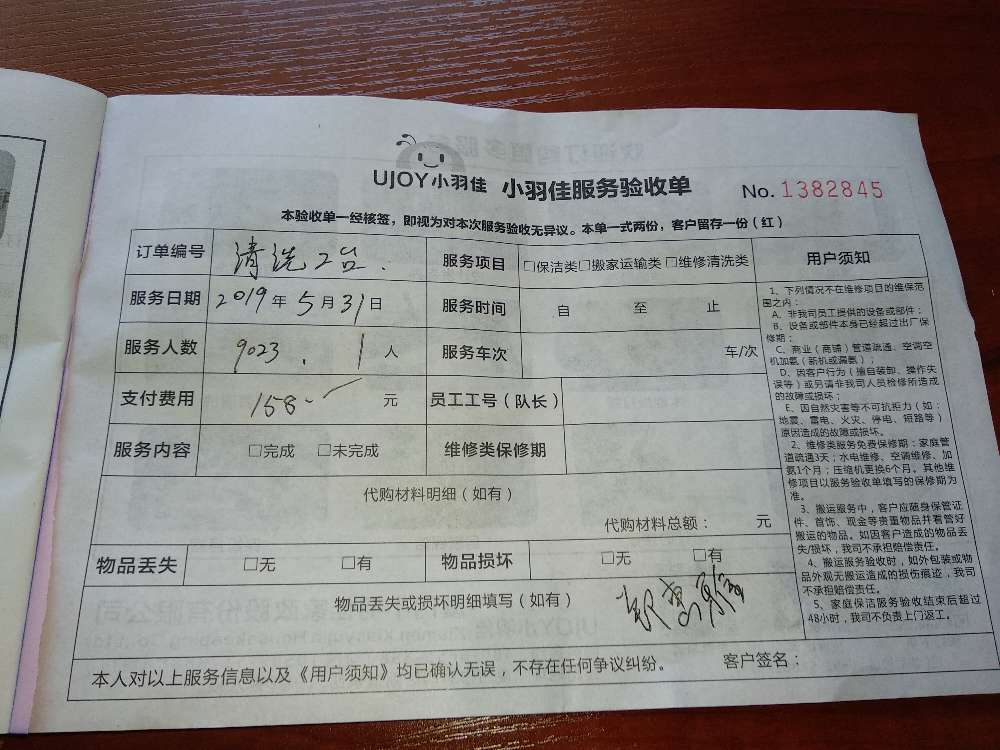 UJOY小羽佳 小羽佳服务验收单 No. 1382845
本验收单一经核签，即视为对本次服务验收无异议。本单一式两份，客户留存一份（红）
订单编号 清洗2台. 服务项目 □保洁类□搬家运输类□维修清洗类
服务日期 2019年5月31日 服务时间 自 至 止
服务人数 9023. 1人 服务车次 车/次
支付费用 158 元 员工工号（队长）
服务内容 □完成 □未完成 维修类保修期
代购材料明细（如有）
代购材料总额： 元
物品丢失 □无 □有 物品损坏 □无 □有
物品丢失或损坏明细填写（如有）
本人对以上服务信息以及《用户须知》均已确认无误，不存在任何争议纠纷。 客户签名：
用户须知
1、下列情况不在维修项目的维保范
围之内：
A、非我司员工提供的设备或部件；
B、设备或部件本身已经超过出厂保
修期；
C、商业（商铺）管道疏通、空调空
机加氨（新机或漏氨）；
D、因客户行为（擅自装卸、操作失
误等）或另请非我司人员检修所造成
的故障或损坏；
E、因自然灾害等不可抗拒力（如：
地震、雷电、火灾、停电、短路等）
原因造成的故障或损坏。
2、维修类服务免费保修期：家庭管
道疏通3天；水电维修、空调维修、加
氨1个月；压缩机更换6个月。其他维
修项目以服务验收单填写的保修期为
准。
3、搬运服务中，客户应随身保管证
件、首饰、现金等贵重物品并看管好
搬运的物品。如因客户造成的物品丢
失/损坏，我司不承担赔偿责任。
4、搬运服务验收时，如外包装或物
品外观无搬运造成的损伤痕迹，我司
不承担赔偿责任。
5、家庭保洁服务验收结束后超过
48小时，我司不负责上门返工。